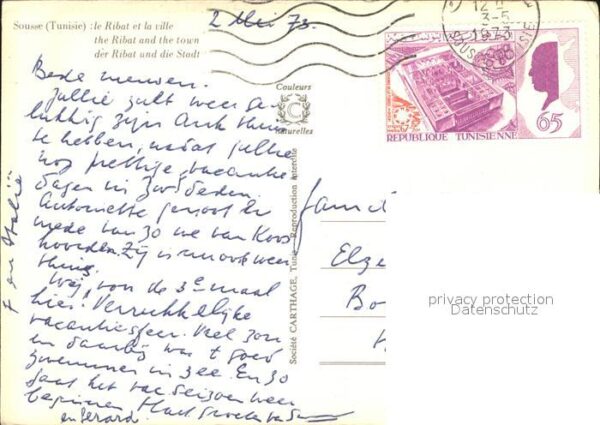 Sousse (Tunisie) : le Ribat et la ville
the Ribat and the town
der Ribat und die Stadt
2 Mei 73.
Couleurs
naturelles
12
3-5
1973
SOUSSE
REPUBLIQUE TUNISIENNE
65
Beste mensen.
Jullie zult weer ge
lukkig zijn Ank thuis
te hebben, nadat jullie
nog prettige vacantie
dagen in Zw. deden.
Antoinette genoot er
mede van zo we van Koos
hoorden. Zij is nu ook weer
thuis.
Wij, voor de 3e maal
hier. Verrukkelijke
vacantiesfeer. Veel zon
en daarbij was 't goed
zwemmen in zee. En zo
gaat het vac. seizoen weer
beginnen. Hart. groeten van
en Gerard.
F en Italië
Société CARTHAGE, Tunis - Reproduction interdite
Fami
Elze
Bo
privacy protection
Datenschutz